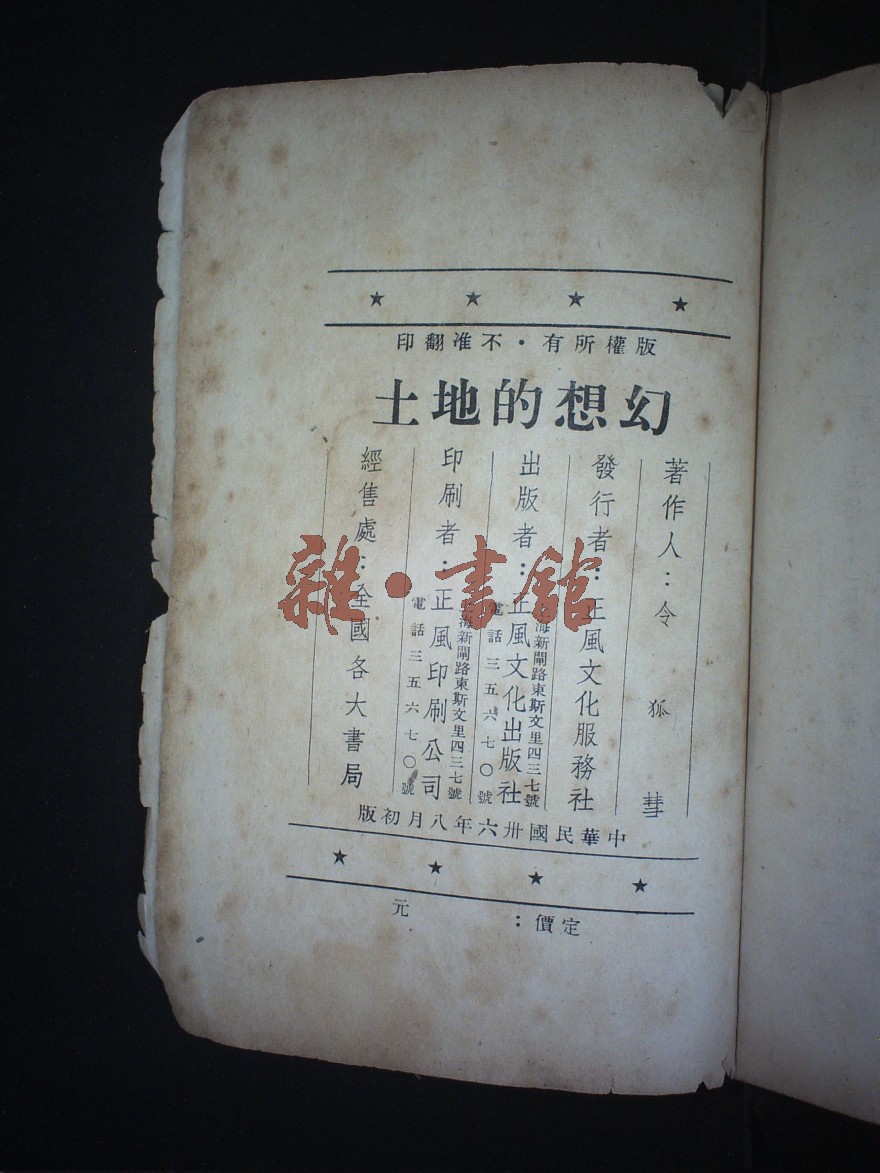 版權所有・不准翻印
幻想的地土
著作人：令狐彗
發行者：正風文化服務社
上海新閘路東斯文里四三七號
出版者：正風文化出版社
電話三五六七〇號
上海新閘路東斯文里四三七號
印刷者：正風印刷公司
電話三五六七〇號
經售處：全國各大書局
中華民國卅六年八月初版
定價：　元
雜・書館